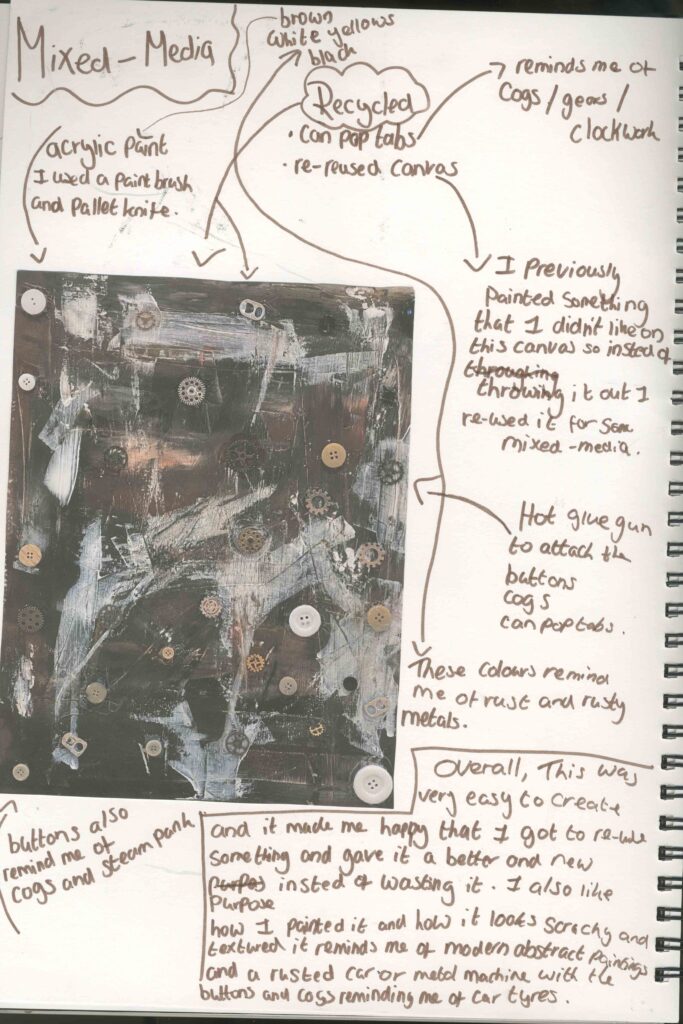 Mixed-Media
brown
white yellows
black
Recycled
• can pop tabs
• re-reused canvas
reminds me of
cogs/gears/
clockwork
acrylic paint
I used a paint brush
and pallet knife.
I Previously
painted something
that I didn't like on
this canvas so insted of
throughing
throwing it out I
re-used it for some
mixed-media.
Hot glue gun
to attach the
buttons
cogs
can pop tabs.
These colours remind
me of rust and rusty
metals.
buttons also
remind me of
cogs and steam punk
Overall, This was
very easy to create
and it made me happy that I got to re-use
something and gave it a better and new
purpos insted of wasting it. I also like
purpose
how I painted it and how it looks scrachy and
textured it reminds me of modern abstract paintings
and a rusted car or metal machine with the
buttons and cogs reminding me of car tyres.